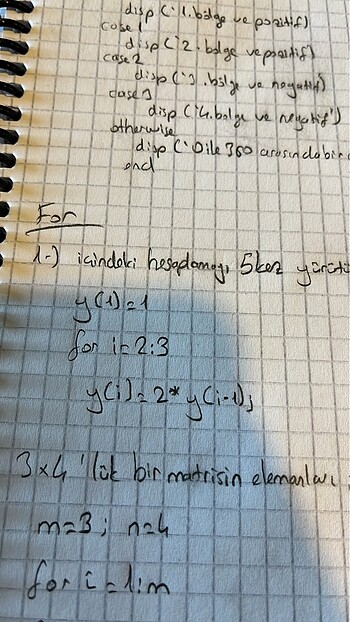 disp ('1.bölge ve pozitif)
case 1
disp ('2.bolge ve pozitif)
case 2
disp ('3.bölge ve negatif)
case 3
disp ('4.bolge ve negatif')
otherwise
disp ('0 ile 360 arasında bir
end
For
1-) içindeki hesaplamayı 5 kez yürüt
y(1)=1
for i=2:3
y(i)=2*y(i-1);
3x4 'lük bir matrisin elemanları
m=3; n=4
for i=1:m